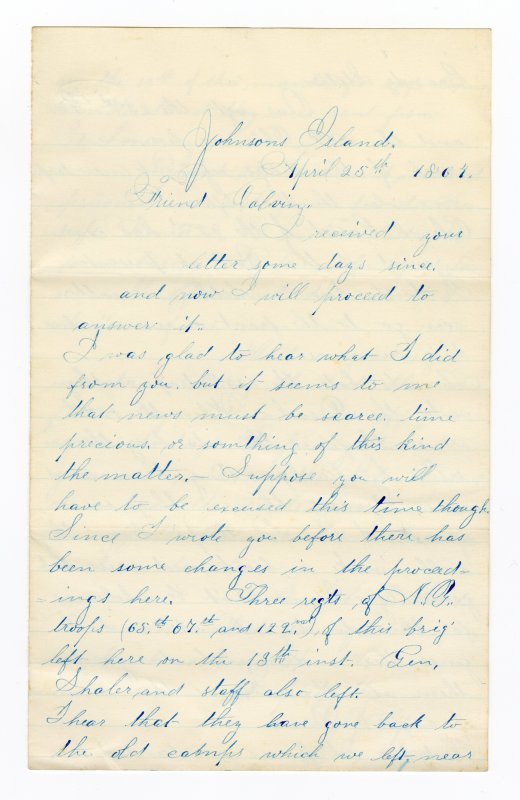 Johnsons Island.
April 25th 1864.
Friend Calvin,
I received your
letter some days since.
and now I will proceed to
answer it.
I was glad to hear what I did
from you. but it seems to me
that news must be scarce. time
precious. or somthing of this kind
the matter.— Suppose you will
have to be excused this time though.
Since I wrote you before there has
been some changes in the proceed-
-ings here. Three regts, of N.Y.
troops (65.th 67.th and 122.nd), of this brig
left here on the 13th inst. Gen,
Shaler and staff also left.
I hear that they have gone back to
the old camps which we left, near